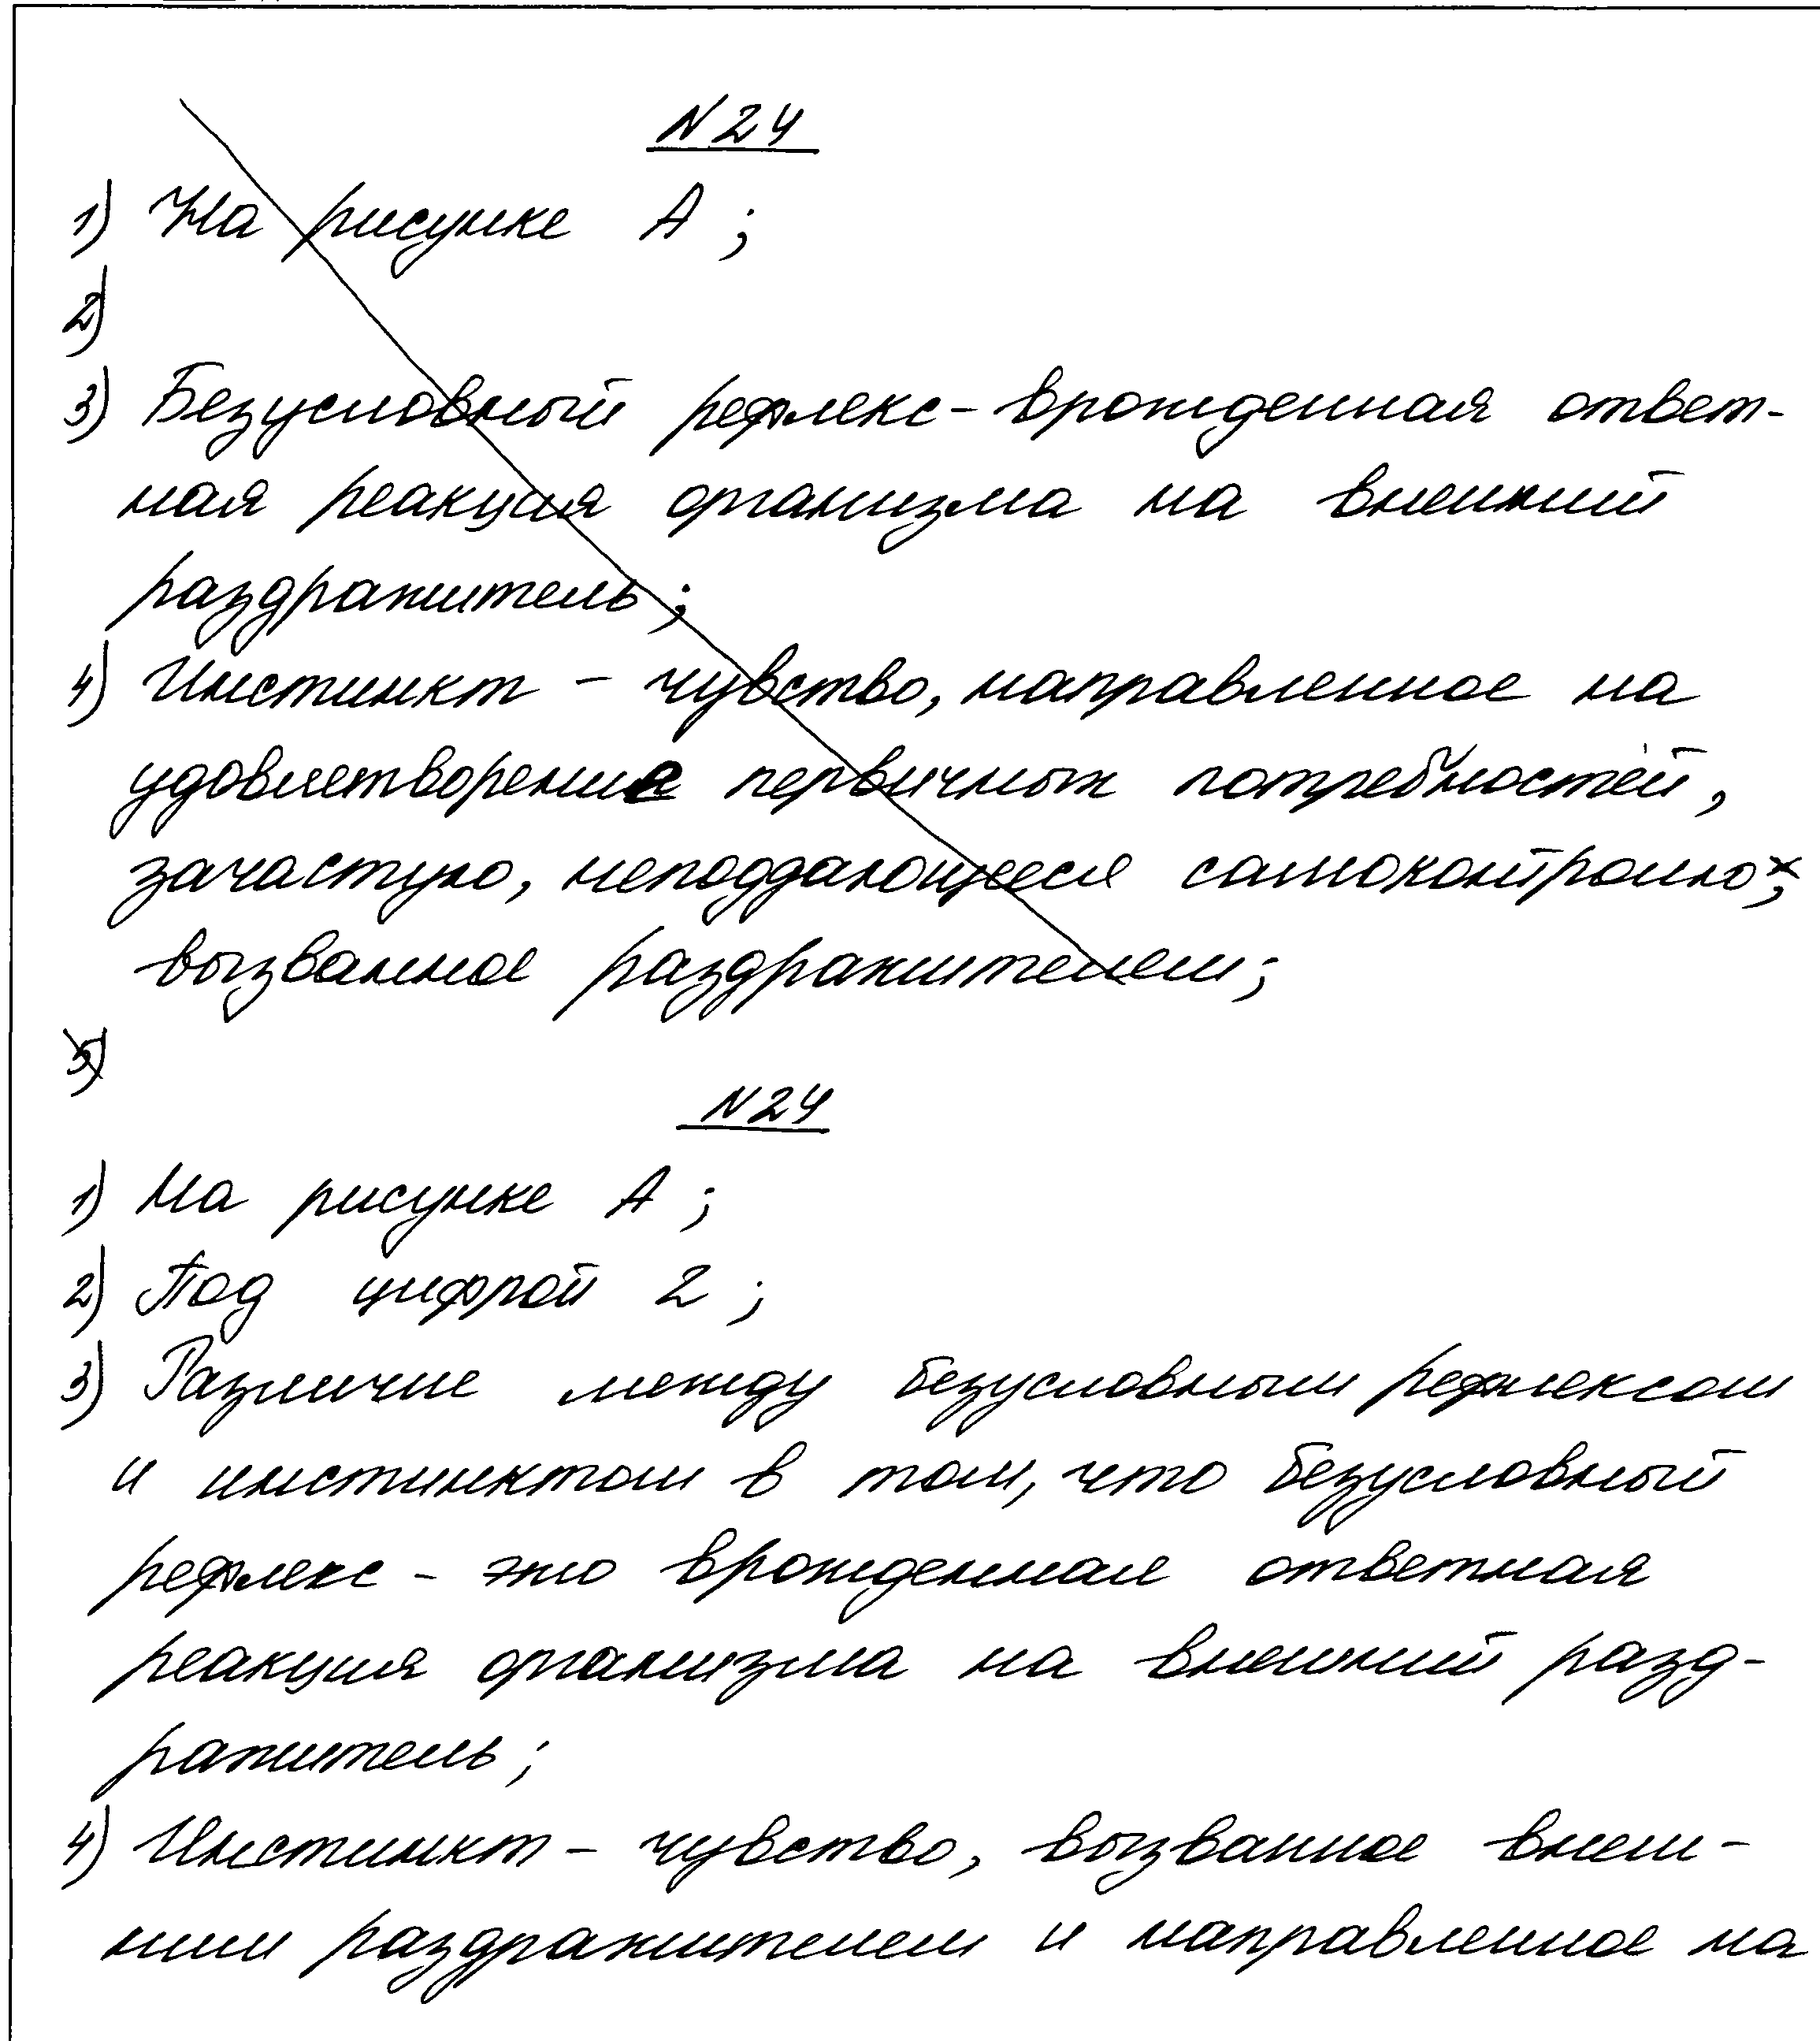 N24
1) На рисунке А ;
2)
3) Безусловный рефлекс - врожденная ответ-
ная реакция организма на внешний
раздражитель ;
4) Инстинкт - чувство, направленное на
удовлетворение первичных потребностей,
зачастую, неподдающееся самоконтролю,
вызванное раздражителем;
5)
N24
1) На рисунке А ;
2) Под цифрой 2 ;
3) Различие между безусловным рефлексом
и инстинктом в том, что безусловный
рефлекс - это врожденная ответная
реакция организма на внешний разд-
ражитель ;
4) Инстинкт - чувство, вызванное внеш-
ним раздражителем и направленное на